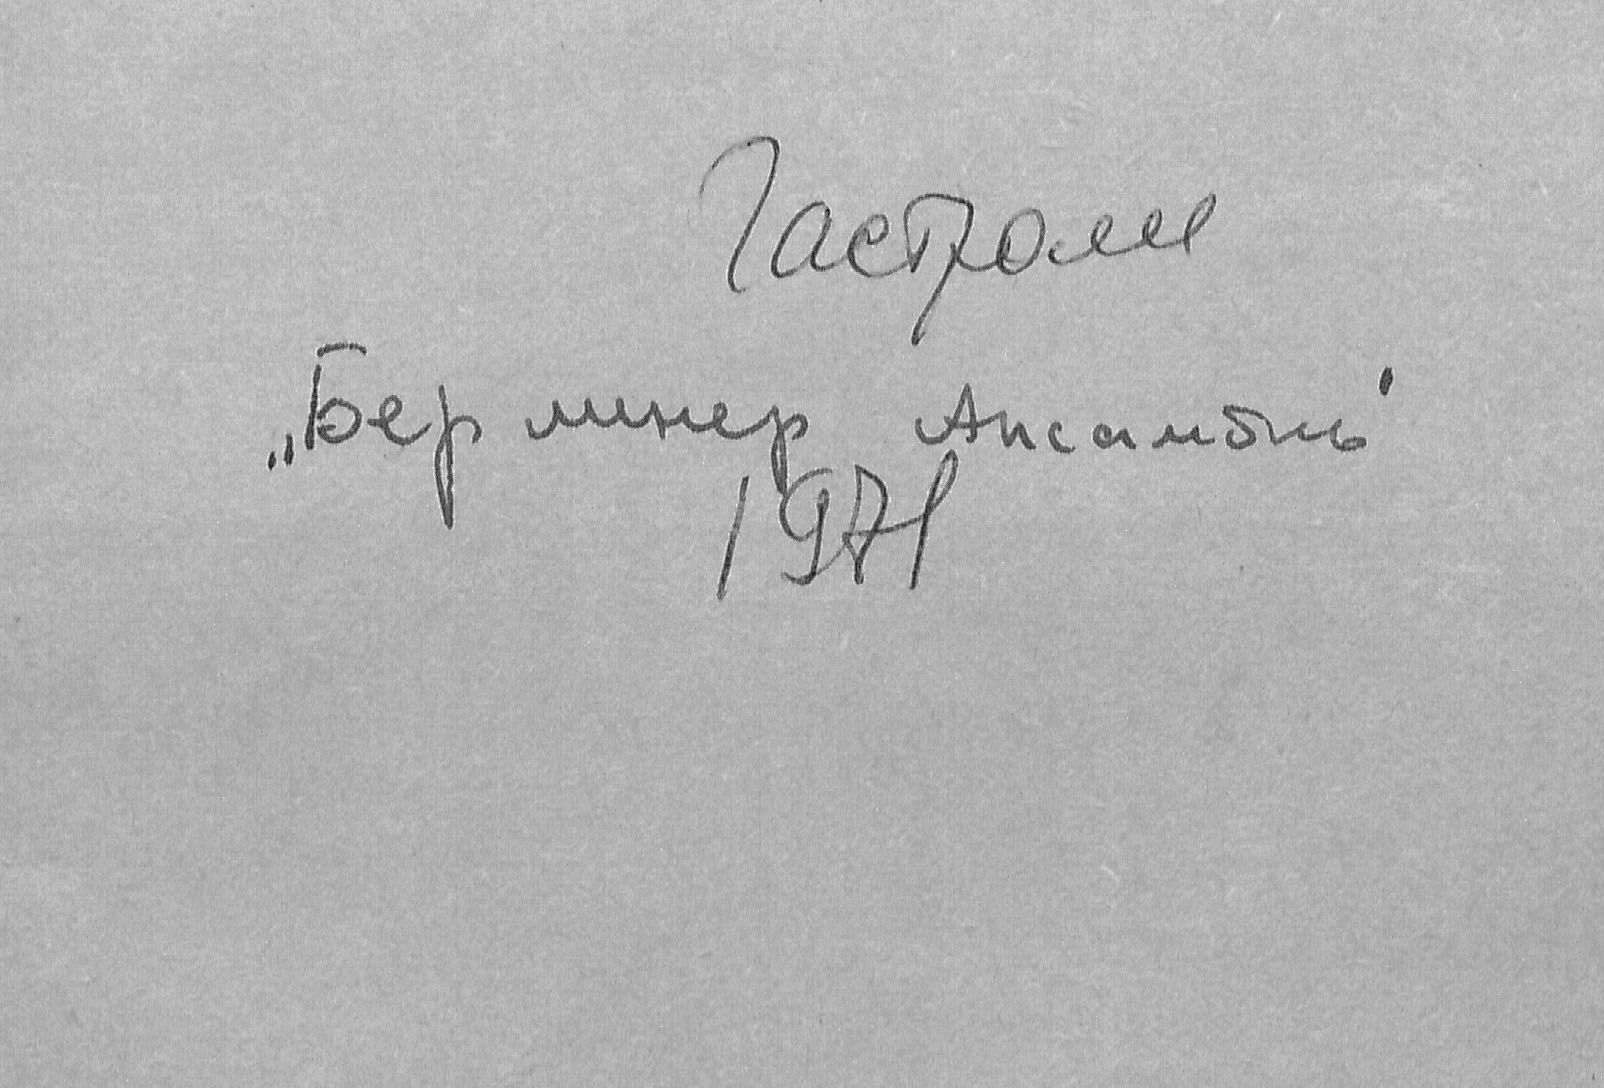 Гастроли
„Берлинер Ансамбль"
1971